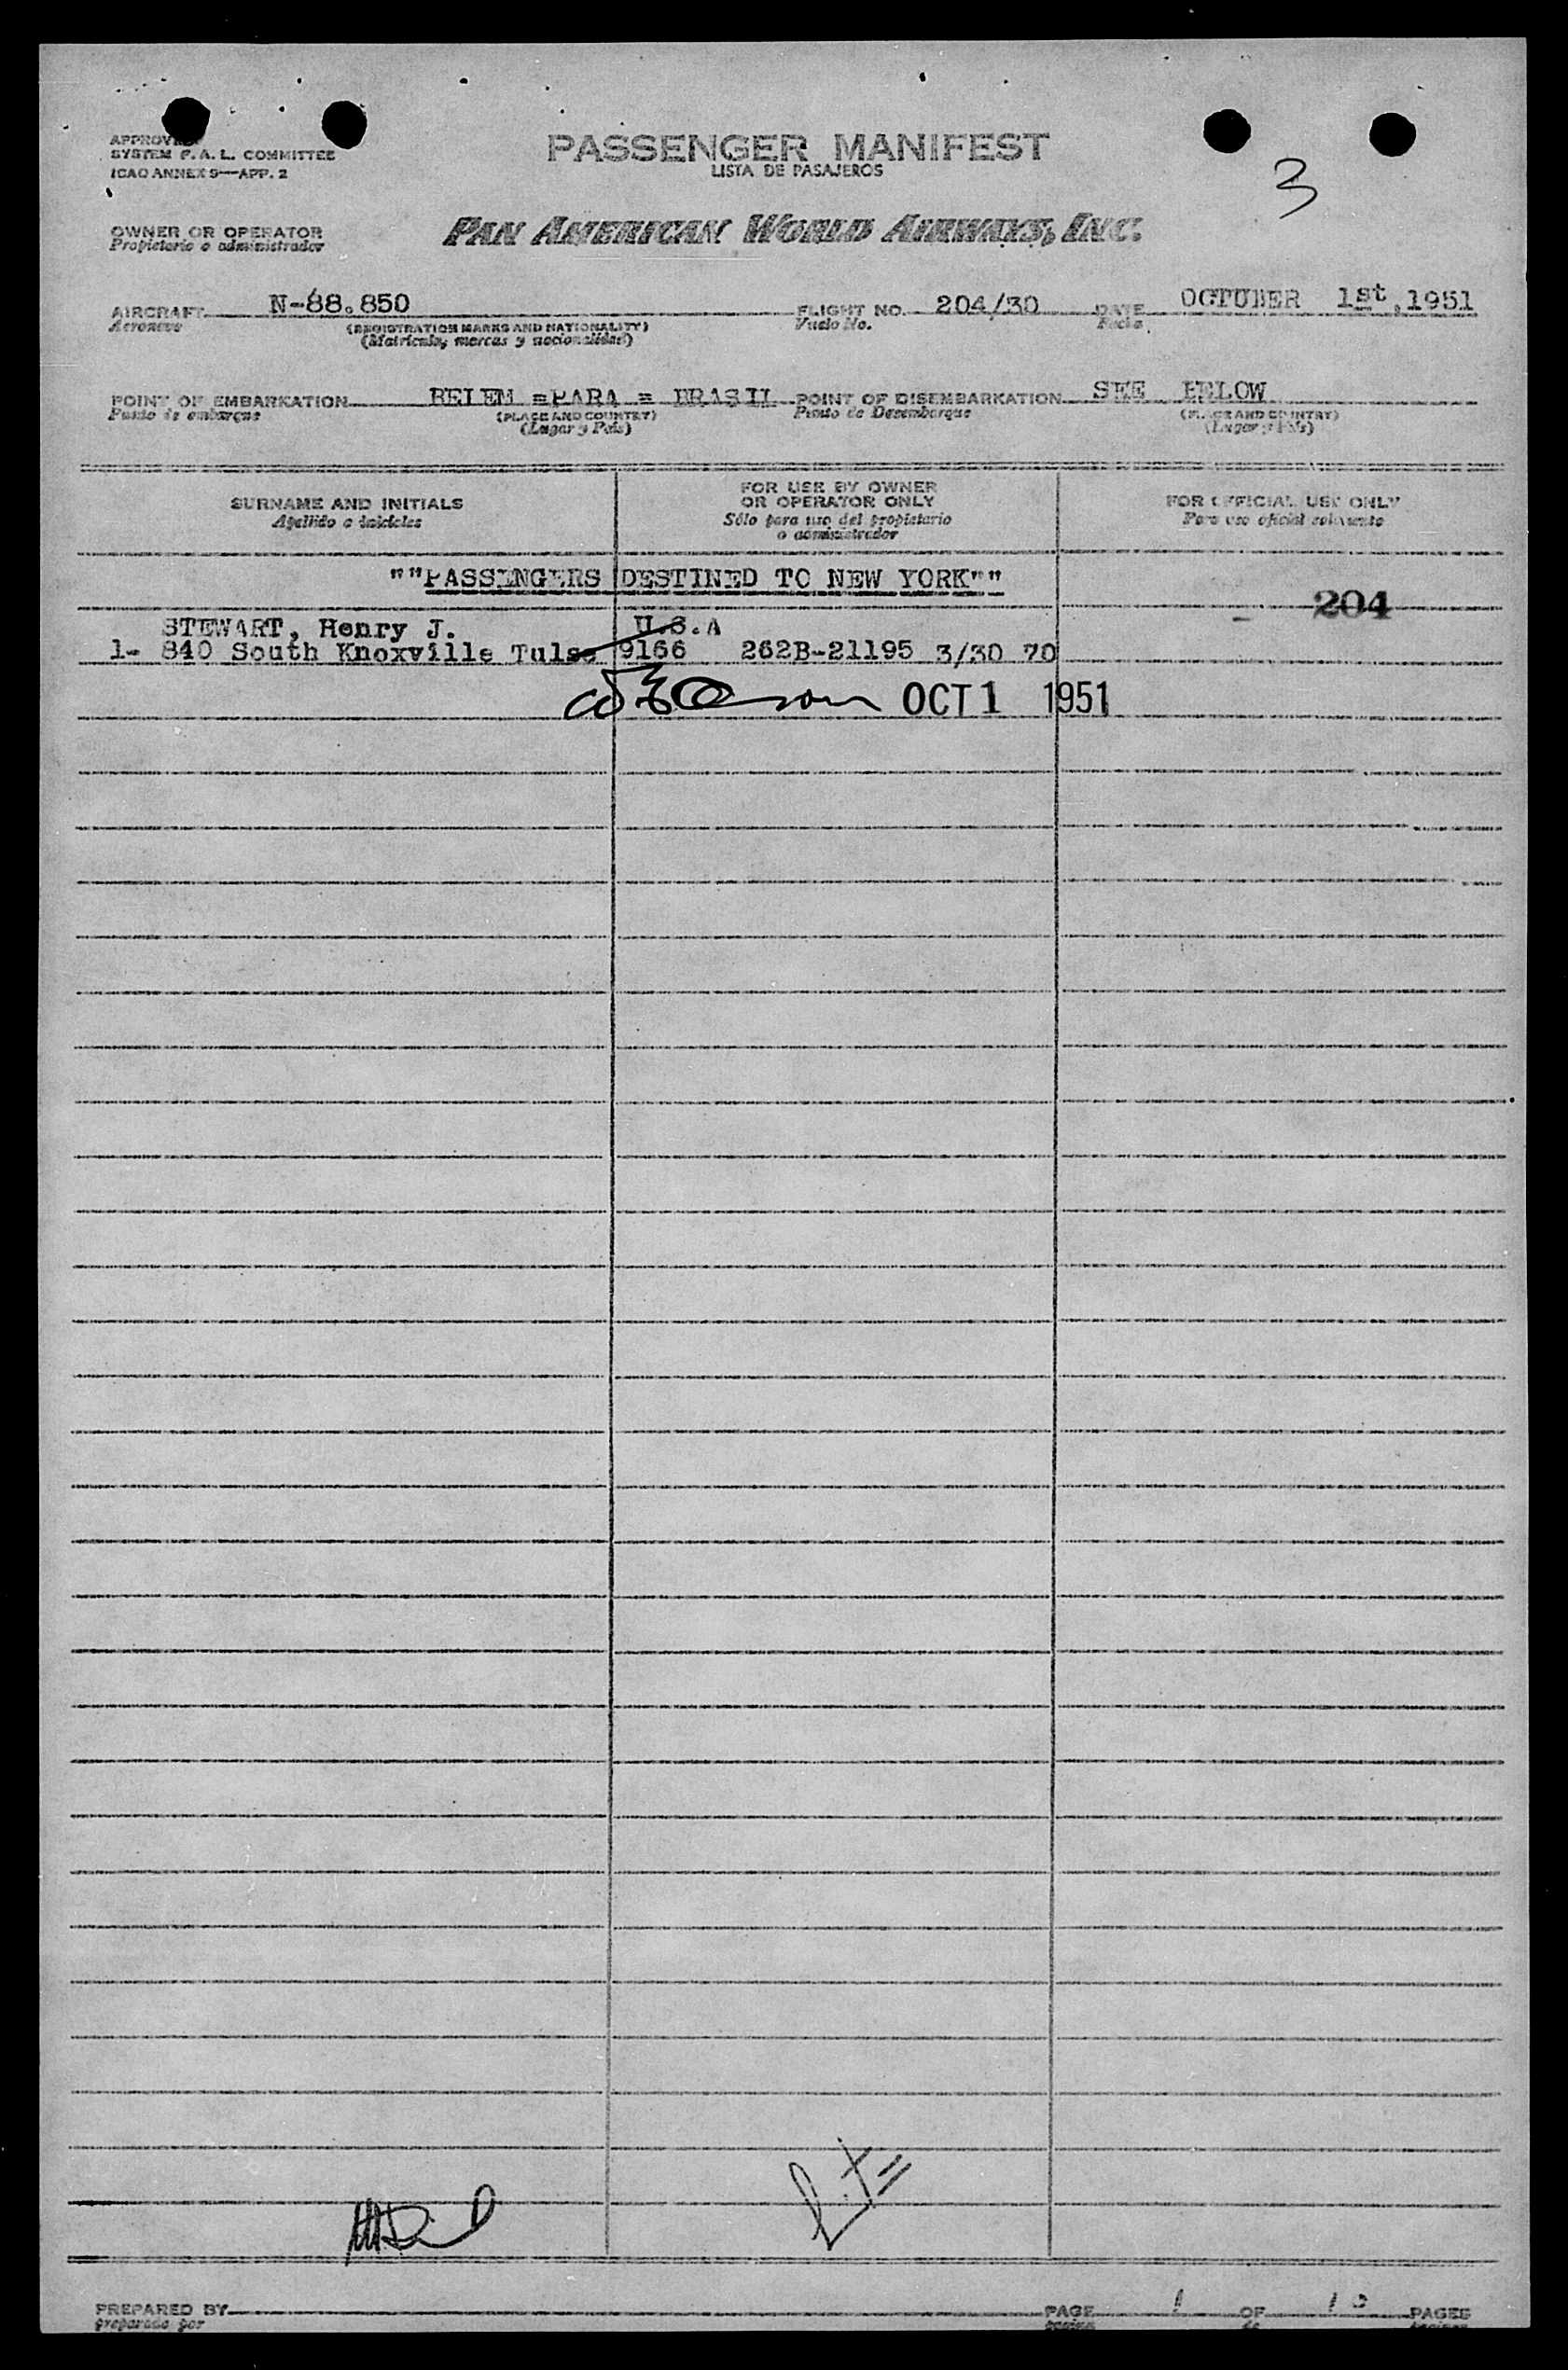 PASSENGER MANIFEST
LISTA DE PASAJEROS
SYSTEM F. A. L. COMMITTEE
ICAO ANNEX 9—APP. 2
3
OWNER OR OPERATOR
Propietario o administrador
PAN AMERICAN WORLD AIRWAYS, INC.
AIRCRAFT N-88.850 FLIGHT NO. 204/30 DATE OCTOBER 1st,1951
Aeronave (REGISTRATION MARKS AND NATIONALITY) Vuelo No. Fecha
(Matricula, marcas y nacionalidad)
POINT OF EMBARKATION BELEM =PARA = BRASIL POINT OF DISEMBARKATION SEE BELOW
Punto de embarque (PLACE AND COUNTRY) Punto de Desembarque (PLACE AND COUNTRY)
(Lugar y País) (Lugar y País)
SURNAME AND INITIALS
Apellido e iniciales
FOR USE BY OWNER
OR OPERATOR ONLY
Sólo para uso del propietario
o administrador
FOR OFFICIAL USE ONLY
Para uso oficial solamente
""PASSENGERS DESTINED TO NEW YORK""
204
STEWART, Henry J. U.S.A
1- 840 South Knoxville Tulsa 9166 262B-21195 3/30 70
OCT 1 1951
PREPARED BY PAGE 1 OF PAGES
preparado por